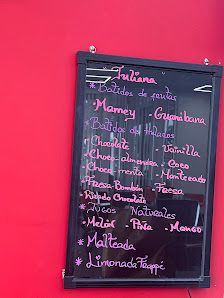 Iuliana
* Batidos de frutas
• Mamey • Guanábana
* Batidos de Helados
• Chocolate • Vainilla
• Choco-almendras • Coco
• Choco menta • Mantecado
• Fresa-Bombón • Fresa
• Rizado Chocolate
* Jugos Naturales
• Melón • Piña • Mango
* Malteada
* Limonada Frappé